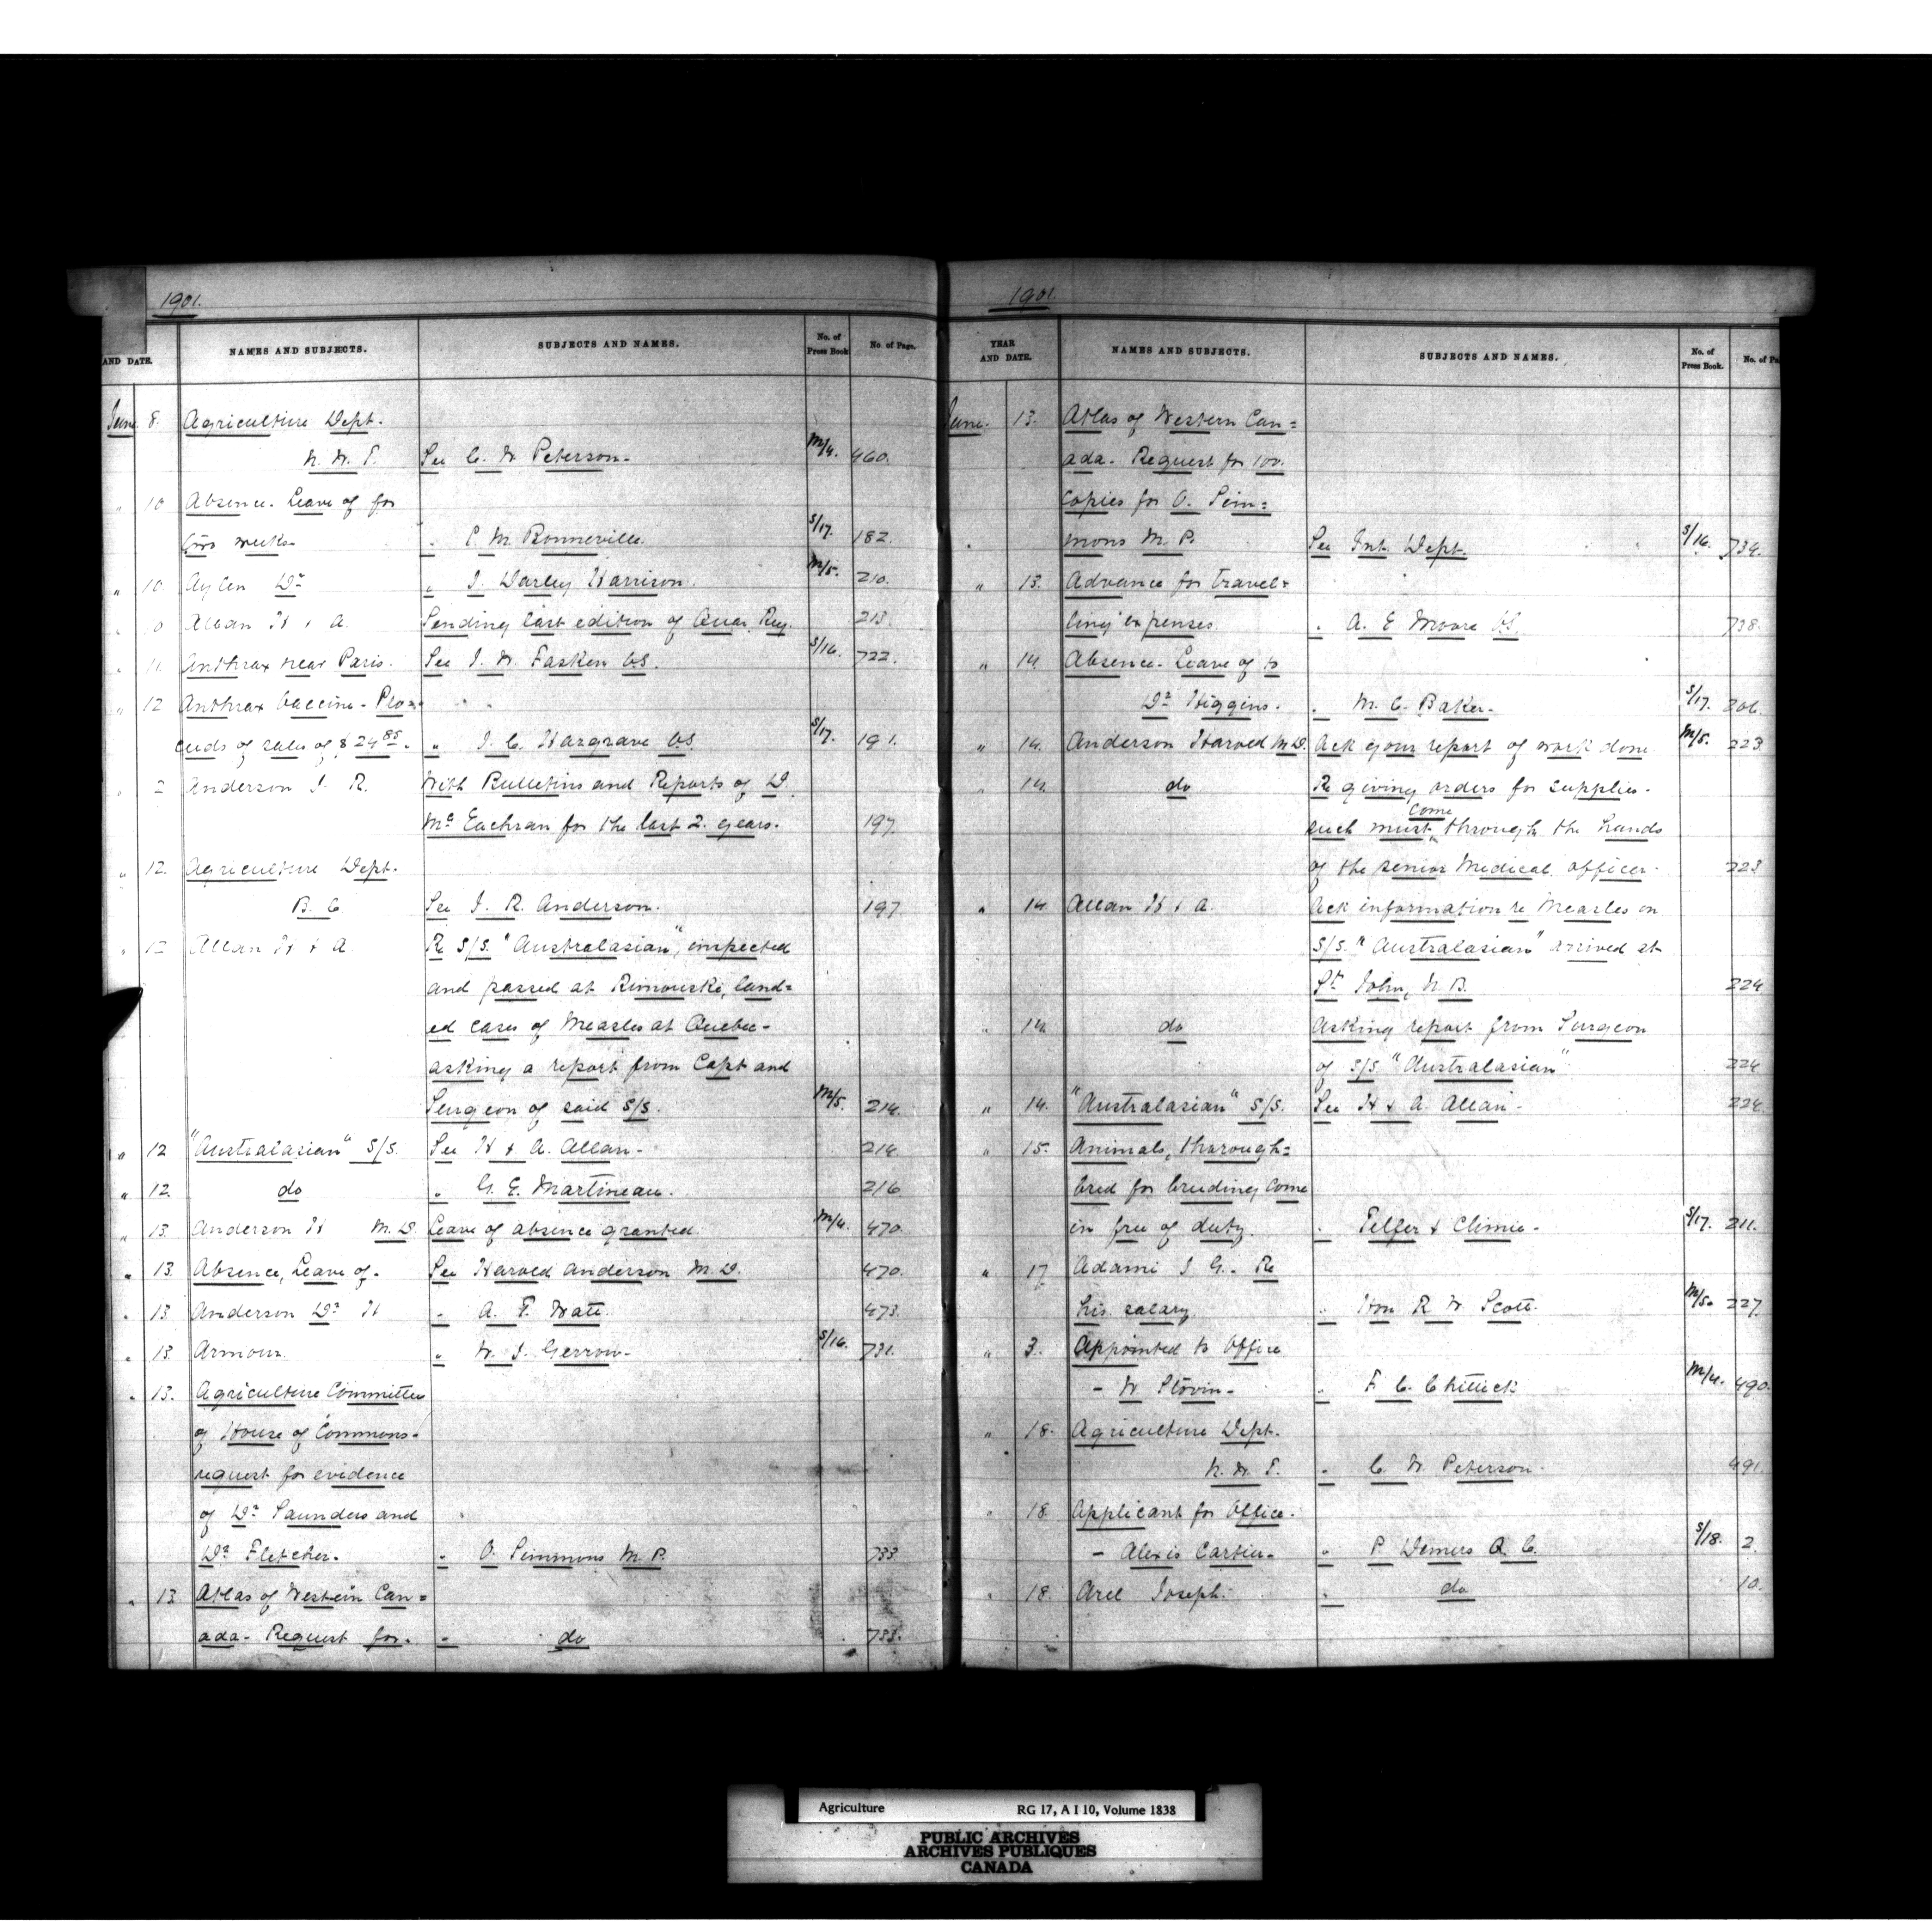 1901.
AND DATE. NAMES AND SUBJECTS. SUBJECTS AND NAMES. No. of Press Book No. of Page.
June 8. Agriculture Dept.
N. W. T. See C. W. Peterson - M/4. 460.
" 10 Absence. Leave of for
two weeks " C. M. Bonneville. S/17. 182.
" 10. Aylen Dr " J. Darley Harrison. M/5. 210.
" 0 Allan H & A. Sending last edition of Quar. Reg. 213
" 11. Anthrax near Paris. See J. W. Fasken V.S. S/16. 722.
" 12 Anthrax Vaccine - Pro= " "
ceeds of sales of $ 24 85 - " J. C. Hargrave V.S. S/17. 191.
" 2 Anderson J. R. With Bulletins and Reports of D.
Mc Eachran for the last 2. years. 197
" 12. Agriculture Dept.
B. C. See J. R. Anderson. 197
" 12 Allan H & A. Re S/S. "Australasian", inspected
and passed at Rimouski, land=
ed cases of Measles at Quebec -
asking a report from Capt and
Surgeon of said S/S. M/5. 214.
" 12 "Australasian" S/S. See H & A. Allan - 214.
" 12. do " G. E. Martineau. 216
" 13. Anderson H M. D. Leave of absence granted. M/4. 470
" 13. Absence, Leave of - See Harold Anderson M. D. 470.
" 13. Anderson Dr H " A. T. Watt. 473.
" 13. Armour. " W. J. Gerrow - S/16. 731.
" 13. Agriculture Committee
of House of Commons -
request for evidence
of Dr Saunders and
Dr Fletcher. " O. Simmons M. P. 733.
" 13. Atlas of Western Can=
ada - Request for. " do 733.
1901.
YEAR AND DATE. NAMES AND SUBJECTS. SUBJECTS AND NAMES. No. of Press Book. No. of Pa
June. 13. Atlas of Western Can=
ada - Request for 100.
copies for O. Sim=
mons M. P. See Int. Dept. S/16. 734.
" 13. Advance for travel=
ling expenses. " A. E. Moore V.S. 738.
" 14. Absence - Leave of to
Dr Higgins. " M. C. Baker - S/17. 206.
" 14. Anderson Harold M. D. Ack your report of work done M/5. 223.
" 14. do Re giving orders for supplies -
such must come through the hands
of the senior Medical officer - 223
" 14. Allan H & A. Ack information re Measles on
S/S. "Australasian" arrived at
St John, N. B. 224
" 14. do Asking report from Surgeon
of S/S "Australasian" 224
" 14. "Australasian" S/S. See H & A. Allan - 224.
" 15. Animals, thorough=
bred for breeding come
in free of duty. " Telfer & Climie - S/17. 211.
" 17 Adami J G. - Re
his salary. " Hon R W Scott. M/5. 227.
" 3. Appointed to Office
- W Slovin - " F. C. Chittick M/4. 490.
" 18. Agriculture Dept.
N. W. T. " C. W. Peterson - 491.
" 18. Applicant for Office.
- Alexis Cartier - " P. Demers Q. C. S/18. 2.
" 18. Arel Joseph. " do 10.
Agriculture RG 17, A I 10, Volume 1838
PUBLIC ARCHIVES
ARCHIVES PUBLIQUES
CANADA